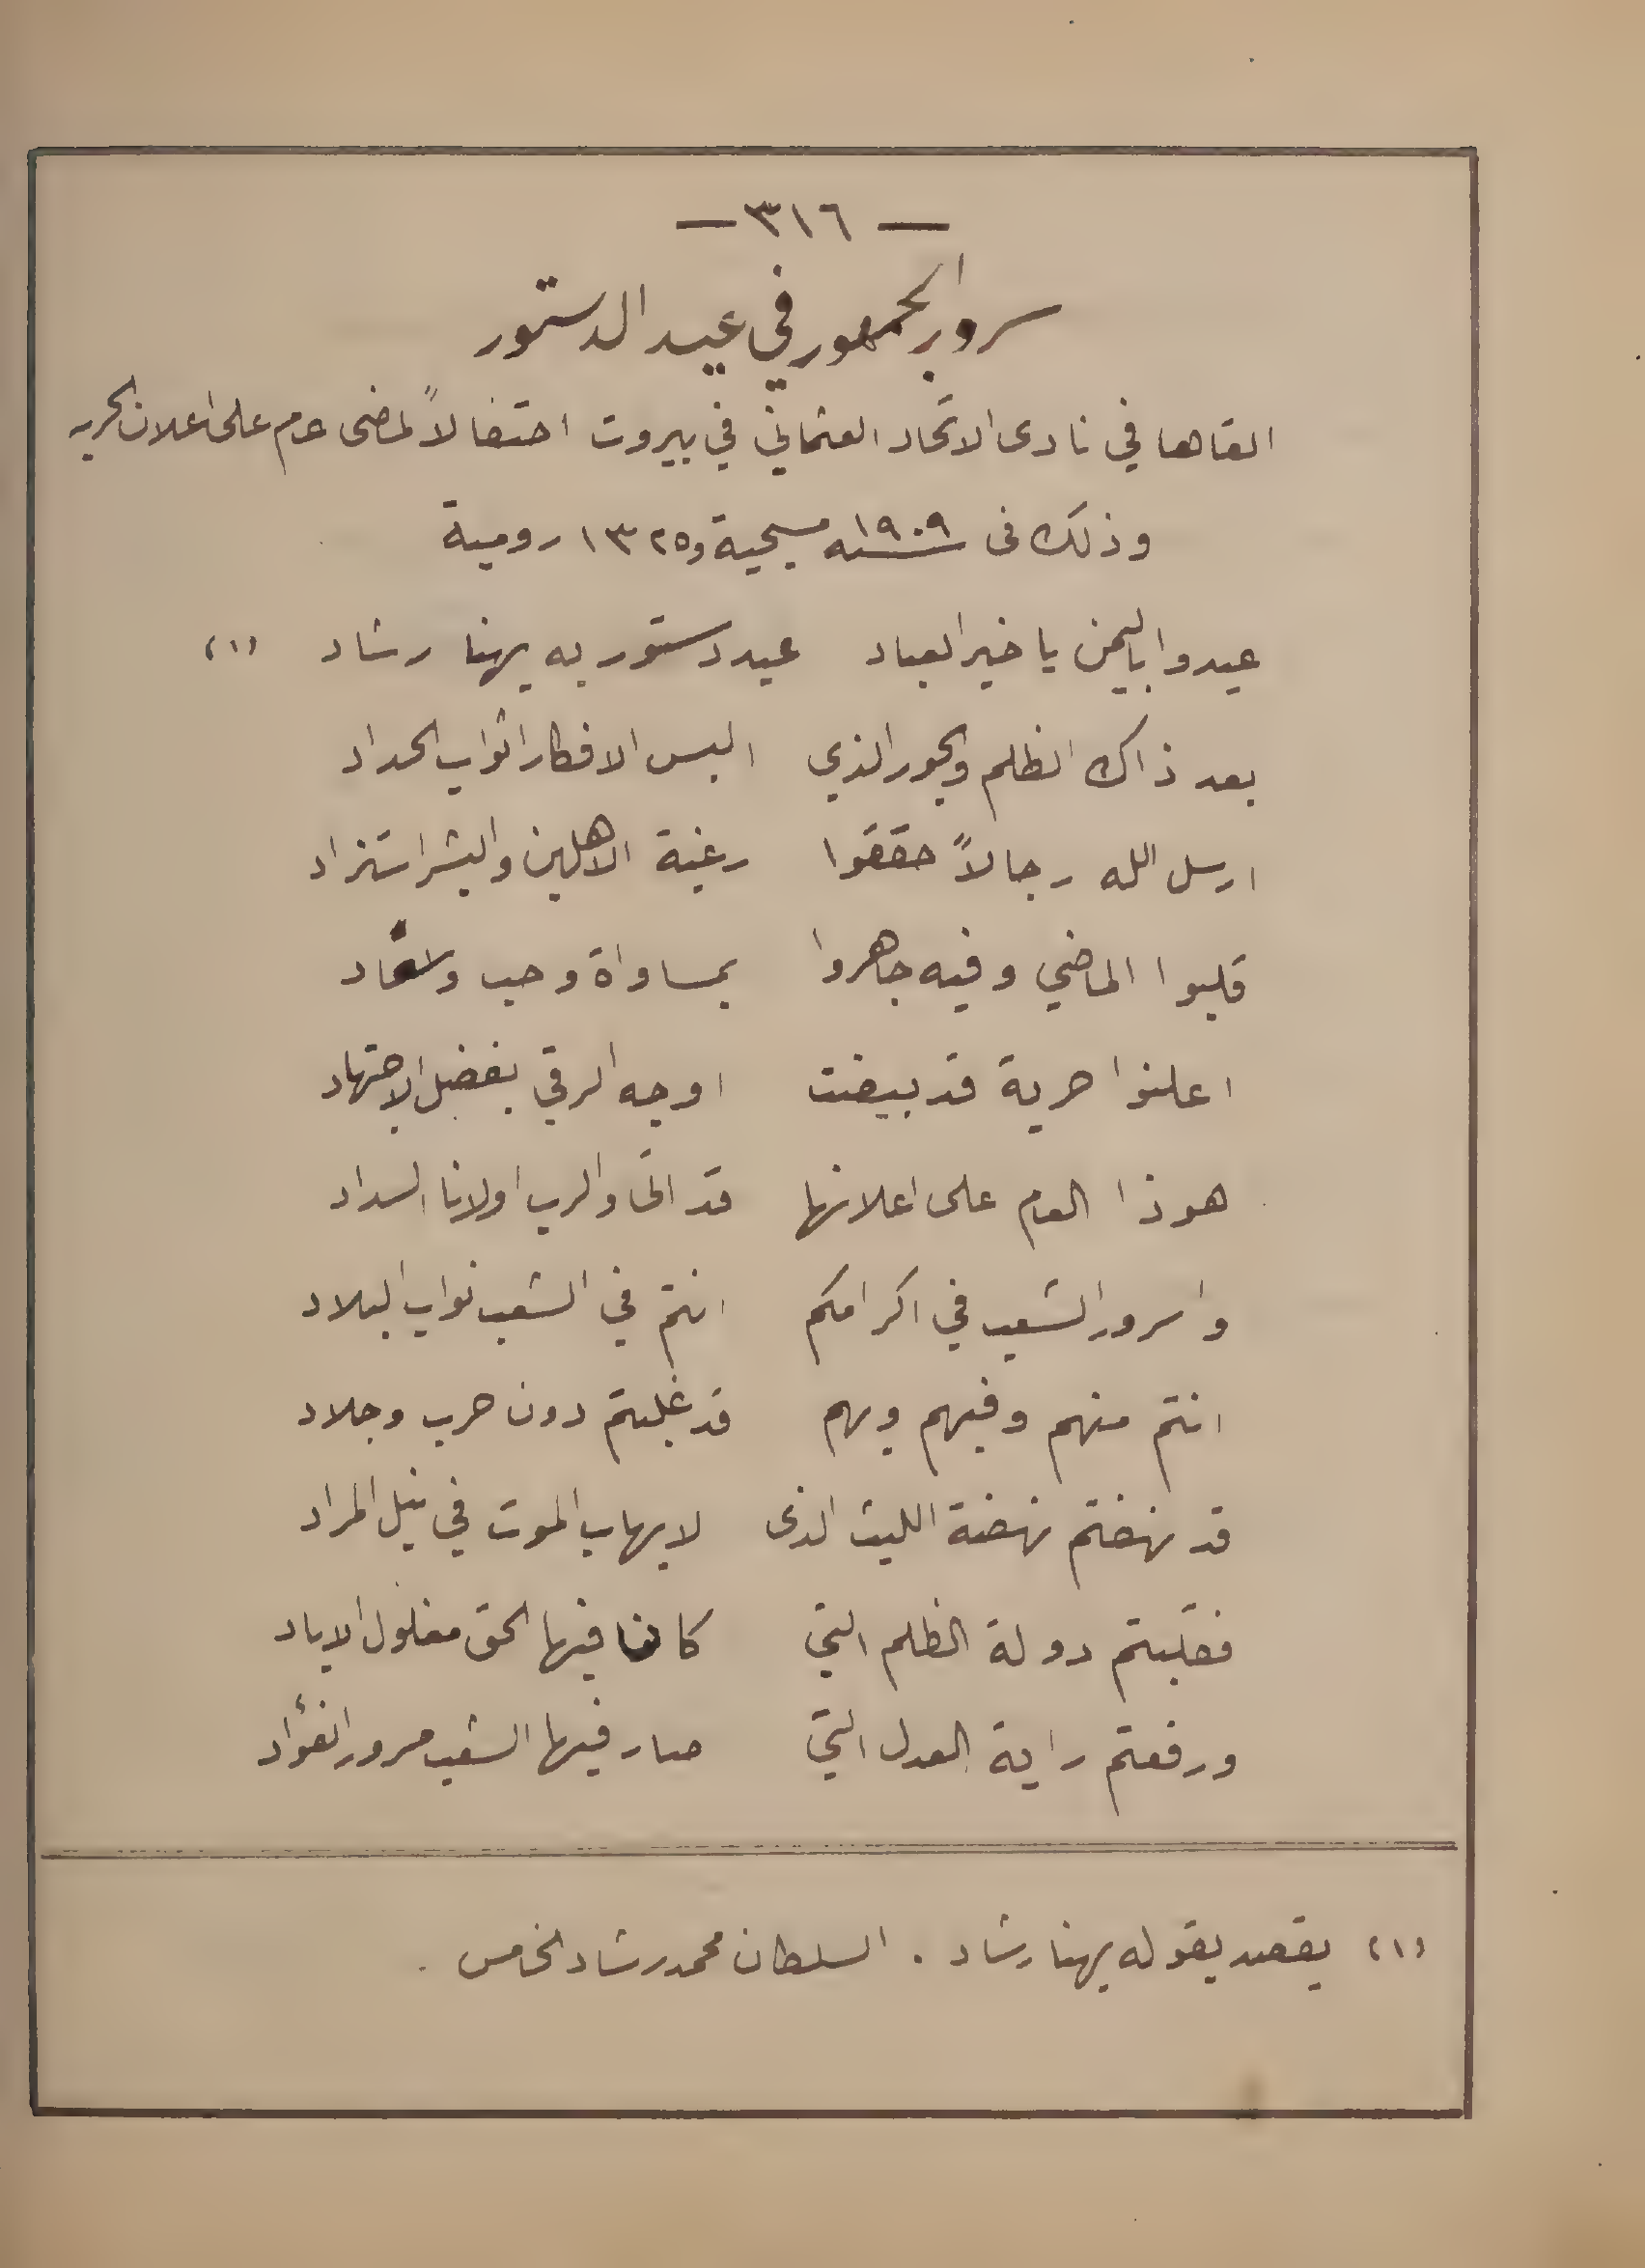 — ٣١٦ —
سرور الجمهور في عيد الدستور
القاها في نادى الاتحاد العثماني في بيروت احتفالاً لمضى عام على اعلان الحريه
وذلك فى سنه ١٩٠٩ مسيحية و١٣٢٥ رومية
عيدوا باليمن يا خير العباد عيد دستور به يهنا رشاد (١)
بعد ذاك الظلم والجور الذي البس الافكار اثواب الحداد
ارسل الله رجالاً حققوا رغبة الاهلين والبشر استزاد
قلبوا الماضي وفيه جاهروا بمساواة وحب واتحاد
اعلنوا حرية قد بيضت اوجه الرقي بفضل الاجتهاد
هوذا العام على اعلانها قد اتى والرب اولانا السداد
واسرور الشعب في اكرامكم انتم في الشعب نواب البلاد
انتم منهم وفيهم وبهم قد غلبتم دون حرب وجلاد
قد نهضتم نهضة الليث الذى لا يهاب الموت في نيل المراد
فقلبتم دولة الظلم التي كان فيها الحق مغلول الاياد
ورفعتم راية العدل التي صار فيها الشعب مسرور الفؤاد
(١) يقصد بقوله يهنا رشاد . السلطان محمد رشاد الخامس .